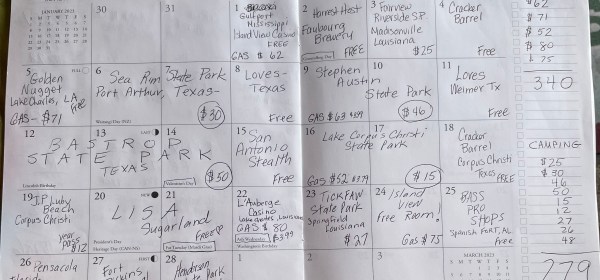 JANUARY 2023
30
31
1
Gulfport
Mississippi
Hard View Casino
FREE
GAS $62
2 Harvest Host
Faubourg
Brewery
FREE
Groundhog Day
3 Fairview
Riverside SP
Madisonville
Louisiana
$25
4 Cracker
Barrel
Free
$62
$71
$52
$80
$75
340
5 Golden
Nugget
Lake Charles, LA
Free
GAS - $71
6 Sea Rim State Park
Port Arthur, Texas-
$30
7
8 Loves-
Texas
Free
9 Stephen
Austin
State Park
GAS $63
10
$46
11
Loves
Weimer Tx
Free
12
13
14
BASTROP
STATE PARK
TEXAS
$50
Lincoln's Birthday
Valentine's Day
15 San
Antonio
Stealth
Free
16
17
Lake Corpus Christi
State Park
Gas $52
$15
18
Cracker
Barrel
Corpus Christi
Texas FREE
CAMPING
$25
$30
46
50
15
12
27
26
48
279
19
J.P Luby
Beach
Corpus Christi
year
pass
$12
20
21
LISA
Sugarland
Free
22
L'Auberge
Casino
Lake Charles, Louisiana
GAS $80
Ash Wednesday
$3.99
23
TICKFAW
State Park
Springfield
Louisiana
$27
24 Island
View
Free Room!
Gas $75
25 BASS
PRO
Shops
Spanish Fort, AL
Free
26 Pensacola
27 Fort
28
State Park
1
2
3
4
MARCH 2023
S M T W T F S